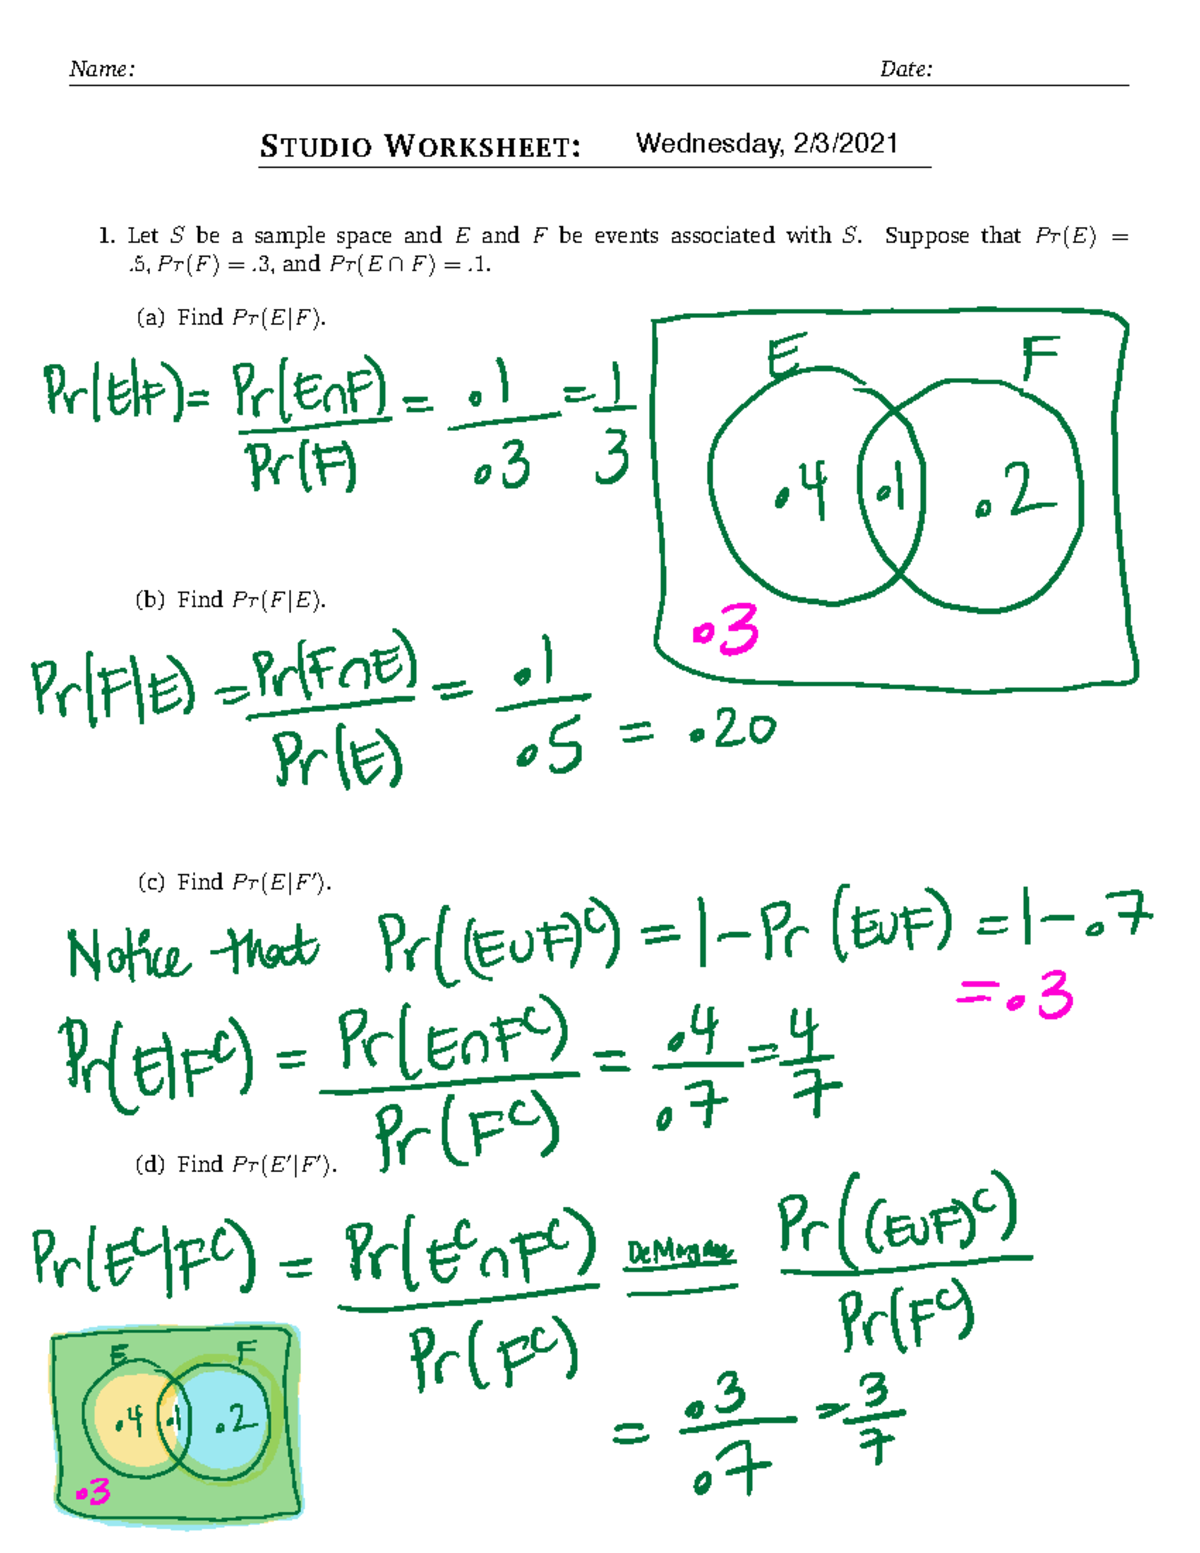 Name: Date:
STUDIO WORKSHEET: Wednesday, 2/3/2021
1. Let S be a sample space and E and F be events associated with S. Suppose that Pr(E) =
.5, Pr(F) = .3, and Pr(E ∩ F) = .1.
(a) Find Pr(E|F).
Pr(E|F) = Pr(E∩F)/Pr(F) = .1/.3 = 1/3
E F
.4 .1 .2
.3
(b) Find Pr(F|E).
Pr(F|E) = Pr(F∩E)/Pr(E) = .1/.5 = .20
(c) Find Pr(E|F′).
Notice that Pr((E∪F)ᶜ) = 1 − Pr(E∪F) = 1 − .7
= .3
Pr(E|Fᶜ) = Pr(E∩Fᶜ)/Pr(Fᶜ) = .4/.7 = 4/7
(d) Find Pr(E′|F′).
Pr(Eᶜ|Fᶜ) = Pr(Eᶜ∩Fᶜ)/Pr(Fᶜ) DeMorgan Pr((E∪F)ᶜ)/Pr(Fᶜ)
= .3/.7 = 3/7
E F
.4 .1 .2
.3